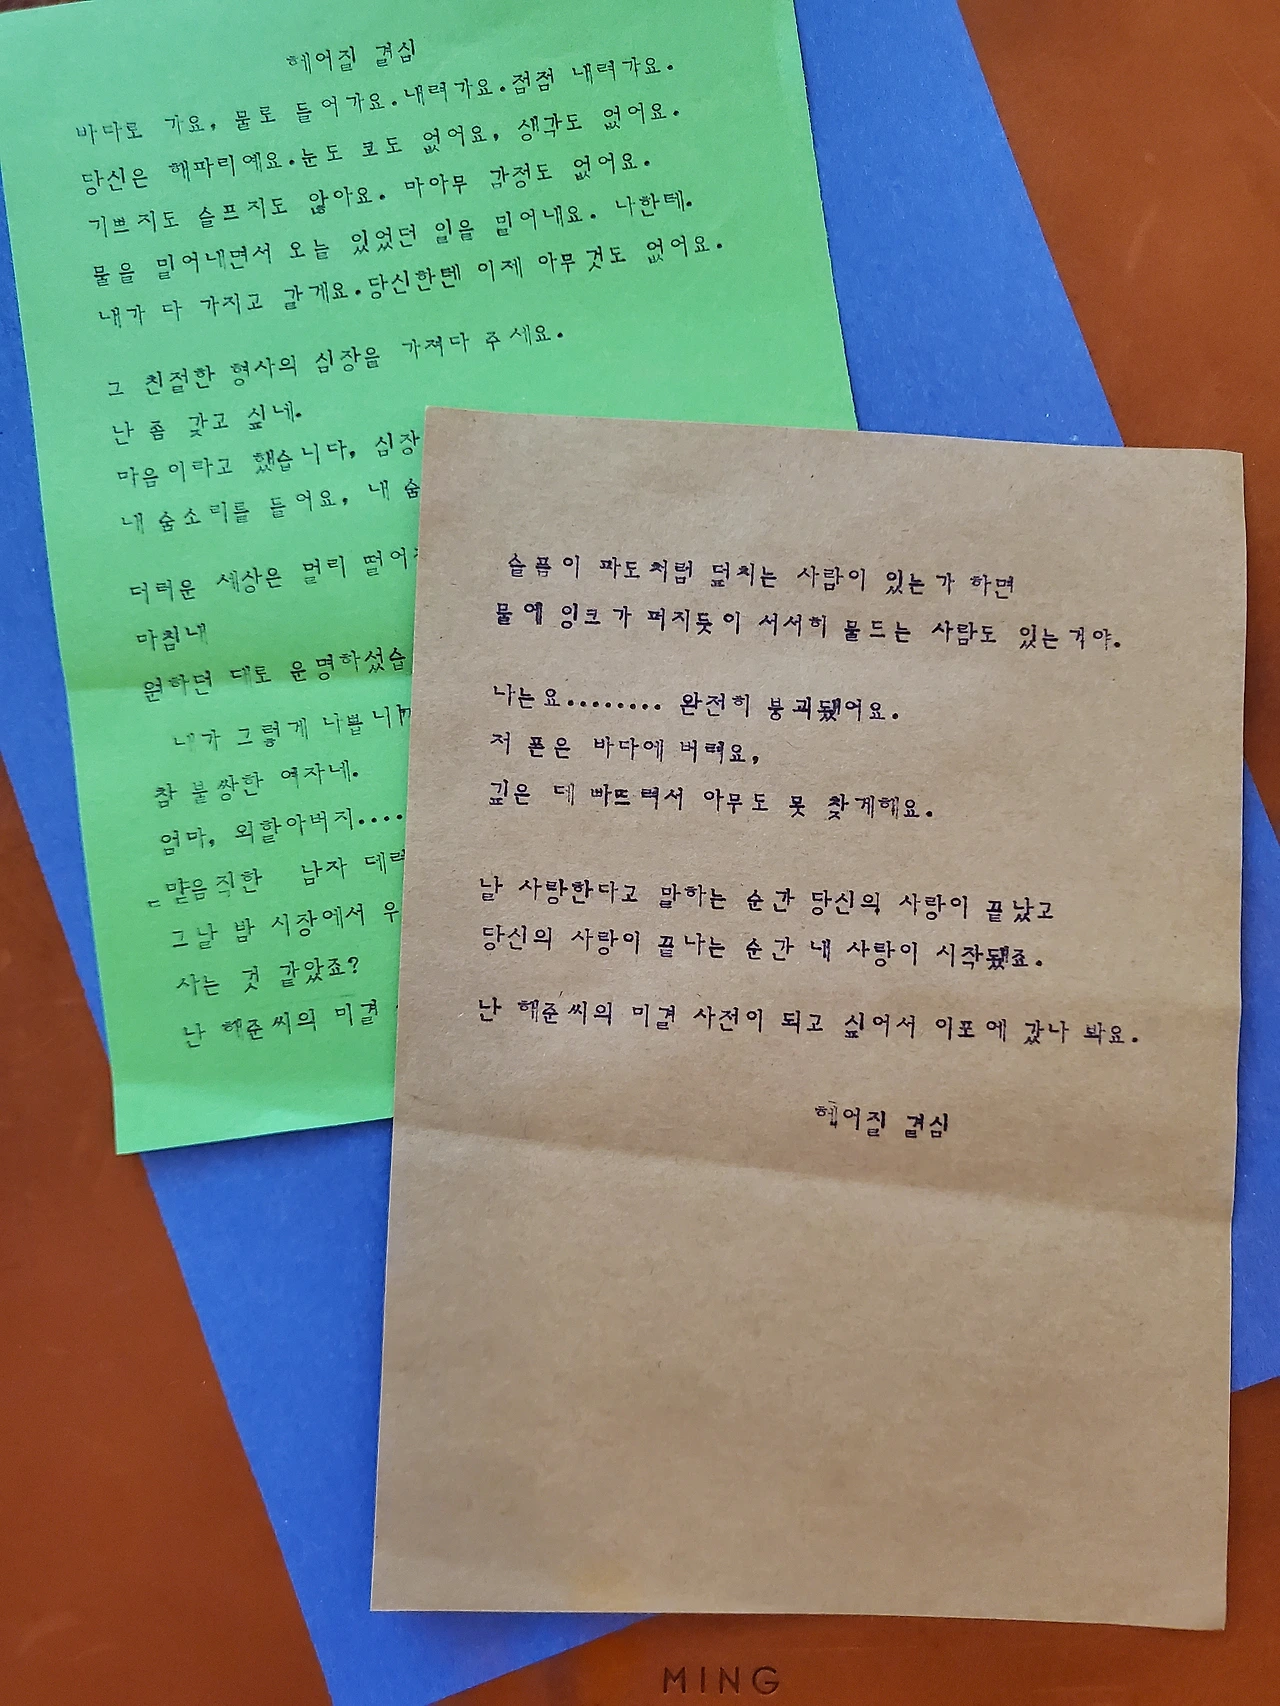 헤어질 결심
바다로 가요, 물로 들어가요.내려가요.점점 내려가요.
당신은 해파리예요.눈도 코도 없어요, 생각도 없어요.
기쁘지도 슬프지도 않아요. 마아무 감정도 없어요.
물을 밀어내면서 오늘 있었던 일을 밀어내요. 나한테.
내가 다 가지고 갈게요.당신한텐 이제 아무것도 없어요.
그 친절한 형사의 심장을 가져다 주세요.
난 좀 갖고 싶네.
마음이라고 했습니다, 심장
내 숨소리를 들어요, 내 숨
더러운 세상은 멀리 떨어
마침내
원하던 대로 운명하셨습
내가 그렇게 나쁩니까
참 불쌍한 여자네.
엄마, 외할아버지....
믿음직한 남자 데려
그날 밤 시장에서 우
사는 것 같았죠?
난 해준씨의 미결
슬픔이 파도처럼 덮치는 사람이 있는가 하면
물에 잉크가 퍼지듯이 서서히 물드는 사람도 있는거야.
나는요........ 완전히 붕괴됐어요.
저 폰은 바다에 버려요,
깊은 데 빠뜨려서 아무도 못 찾게해요.
날 사랑한다고 말하는 순간 당신의 사랑이 끝났고
당신의 사랑이 끝나는 순간 내 사랑이 시작됐죠.
난 해준씨의 미결 사전이 되고 싶어서 이포에 갔나 봐요.
헤어질 결심
MING